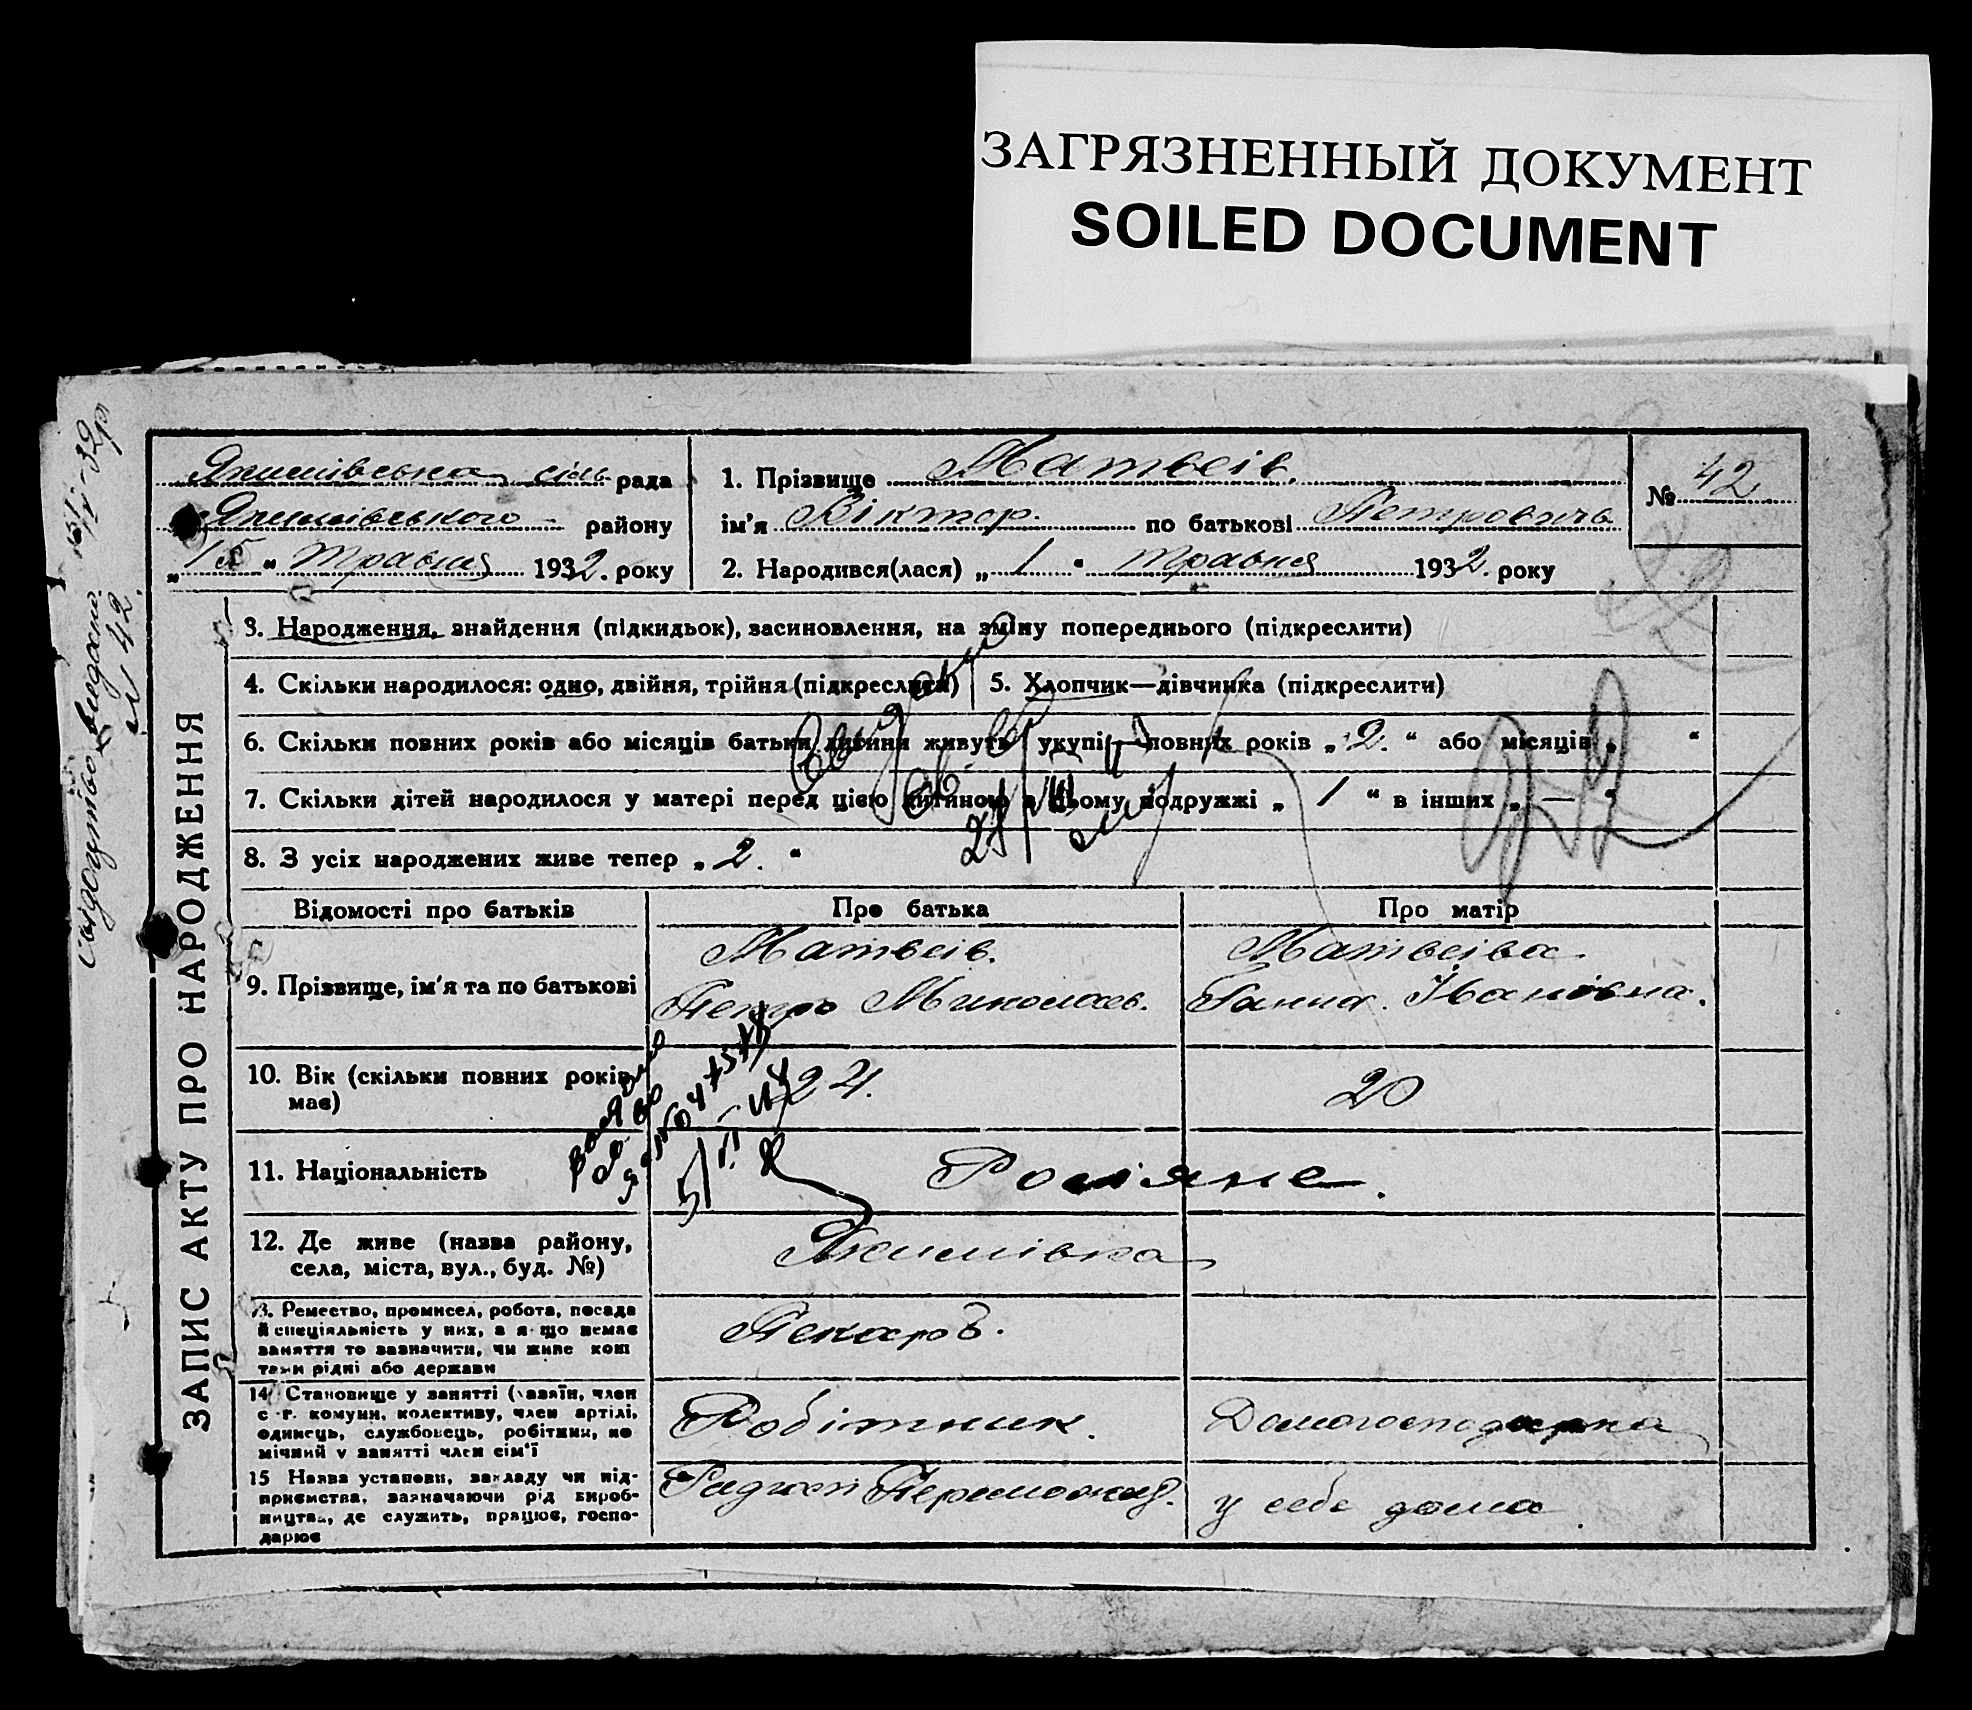 ЗАГРЯЗНЕННЫЙ ДОКУМЕНТ
SOILED DOCUMENT
Якимівська сіль рада
Якимівського району
„15“ травня 1932. року
1. Прізвище Матвеів.
ім'я Віктор. по батькові Петровичь
№ 42
2. Народився(лася) „1“ травня 1932. року
ЗАПИС АКТУ ПРО НАРОДЖЕННЯ
3. Народження, знайдення (підкидьок), засиновлення, на зміну попереднього (підкреслити)
4. Скільки народилося: одно, двійня, трійня (підкреслити)
5. Хлопчик—дівчинка (підкреслити)
6. Скільки повних років або місяців батьки дитини живуть укупі—повних років „2.“ або місяців „ “
7. Скільки дітей народилося у матері перед цією дитиною в цьому подружжі „1“ в інших „—“
8. З усіх народжених живе тепер „2.“
Відомості про батьків
Про батька
Про матір
9. Прізвище, ім'я та по батькові
Матвеів.
Петро Миколаев.
Матвеіва
Ганна. Івановна.
10. Вік (скільки повних років має)
24.
20
11. Національність
Росіяне.
12. Де живе (назва району,
села, міста, вул., буд. №)
Якимівка
13. Ремество, промисел, робота, посада
й спеціяльність у них, а якщо немає
заняття то зазначити, чи живе кош
тами рідні або держави
Пекарь.
14. Становище у занятті (хазяїн, член
с.-г. комуни, колективу, член артілі,
одинець, службовець, робітник, по
мічний у занятті член сім'ї
Робітник.
Домогосподарка
15 Назва установи, закладу чи під-
приємства, зазначаючи рід вироб-
ництва, де служить, працює, госпо-
дарює
у себе дома.
№ 42.